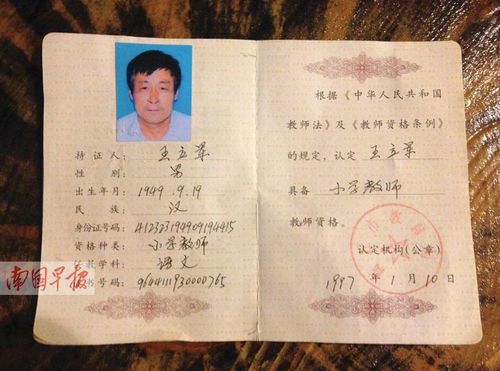 持证人: 王立军
性别: 男
出生年月: 1949.9.19
民族: 汉
身份证号码: 412323194909194415
资格种类: 小学教师
任教学科: 语文
证书号码: 9644111930000765
南国早报
根据《中华人民共和国
教师法》及《教师资格条例》
的规定,认定 王立军
具备 小学教师
教师资格。
认定机构(公章)
1997年1月10日